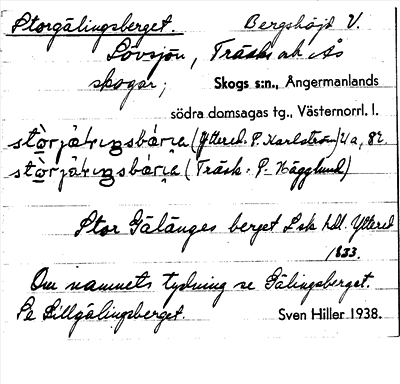 Storgålingsberget. Bergshöjd V.
Lövsjön, Träsk och Ås
skogar; Skogs s:n., Ångermanlands
södra domsagas tg., Västernorrl. l.
(Yttered. P. Karlström)
(Träsk. P. Hägglund)
Stor Gålänges berget Lsk hdl. Yttered
1833.
Om namnets tydning se Gålingsberget.
Se Lillgålingsberget. Sven Hiller 1938.